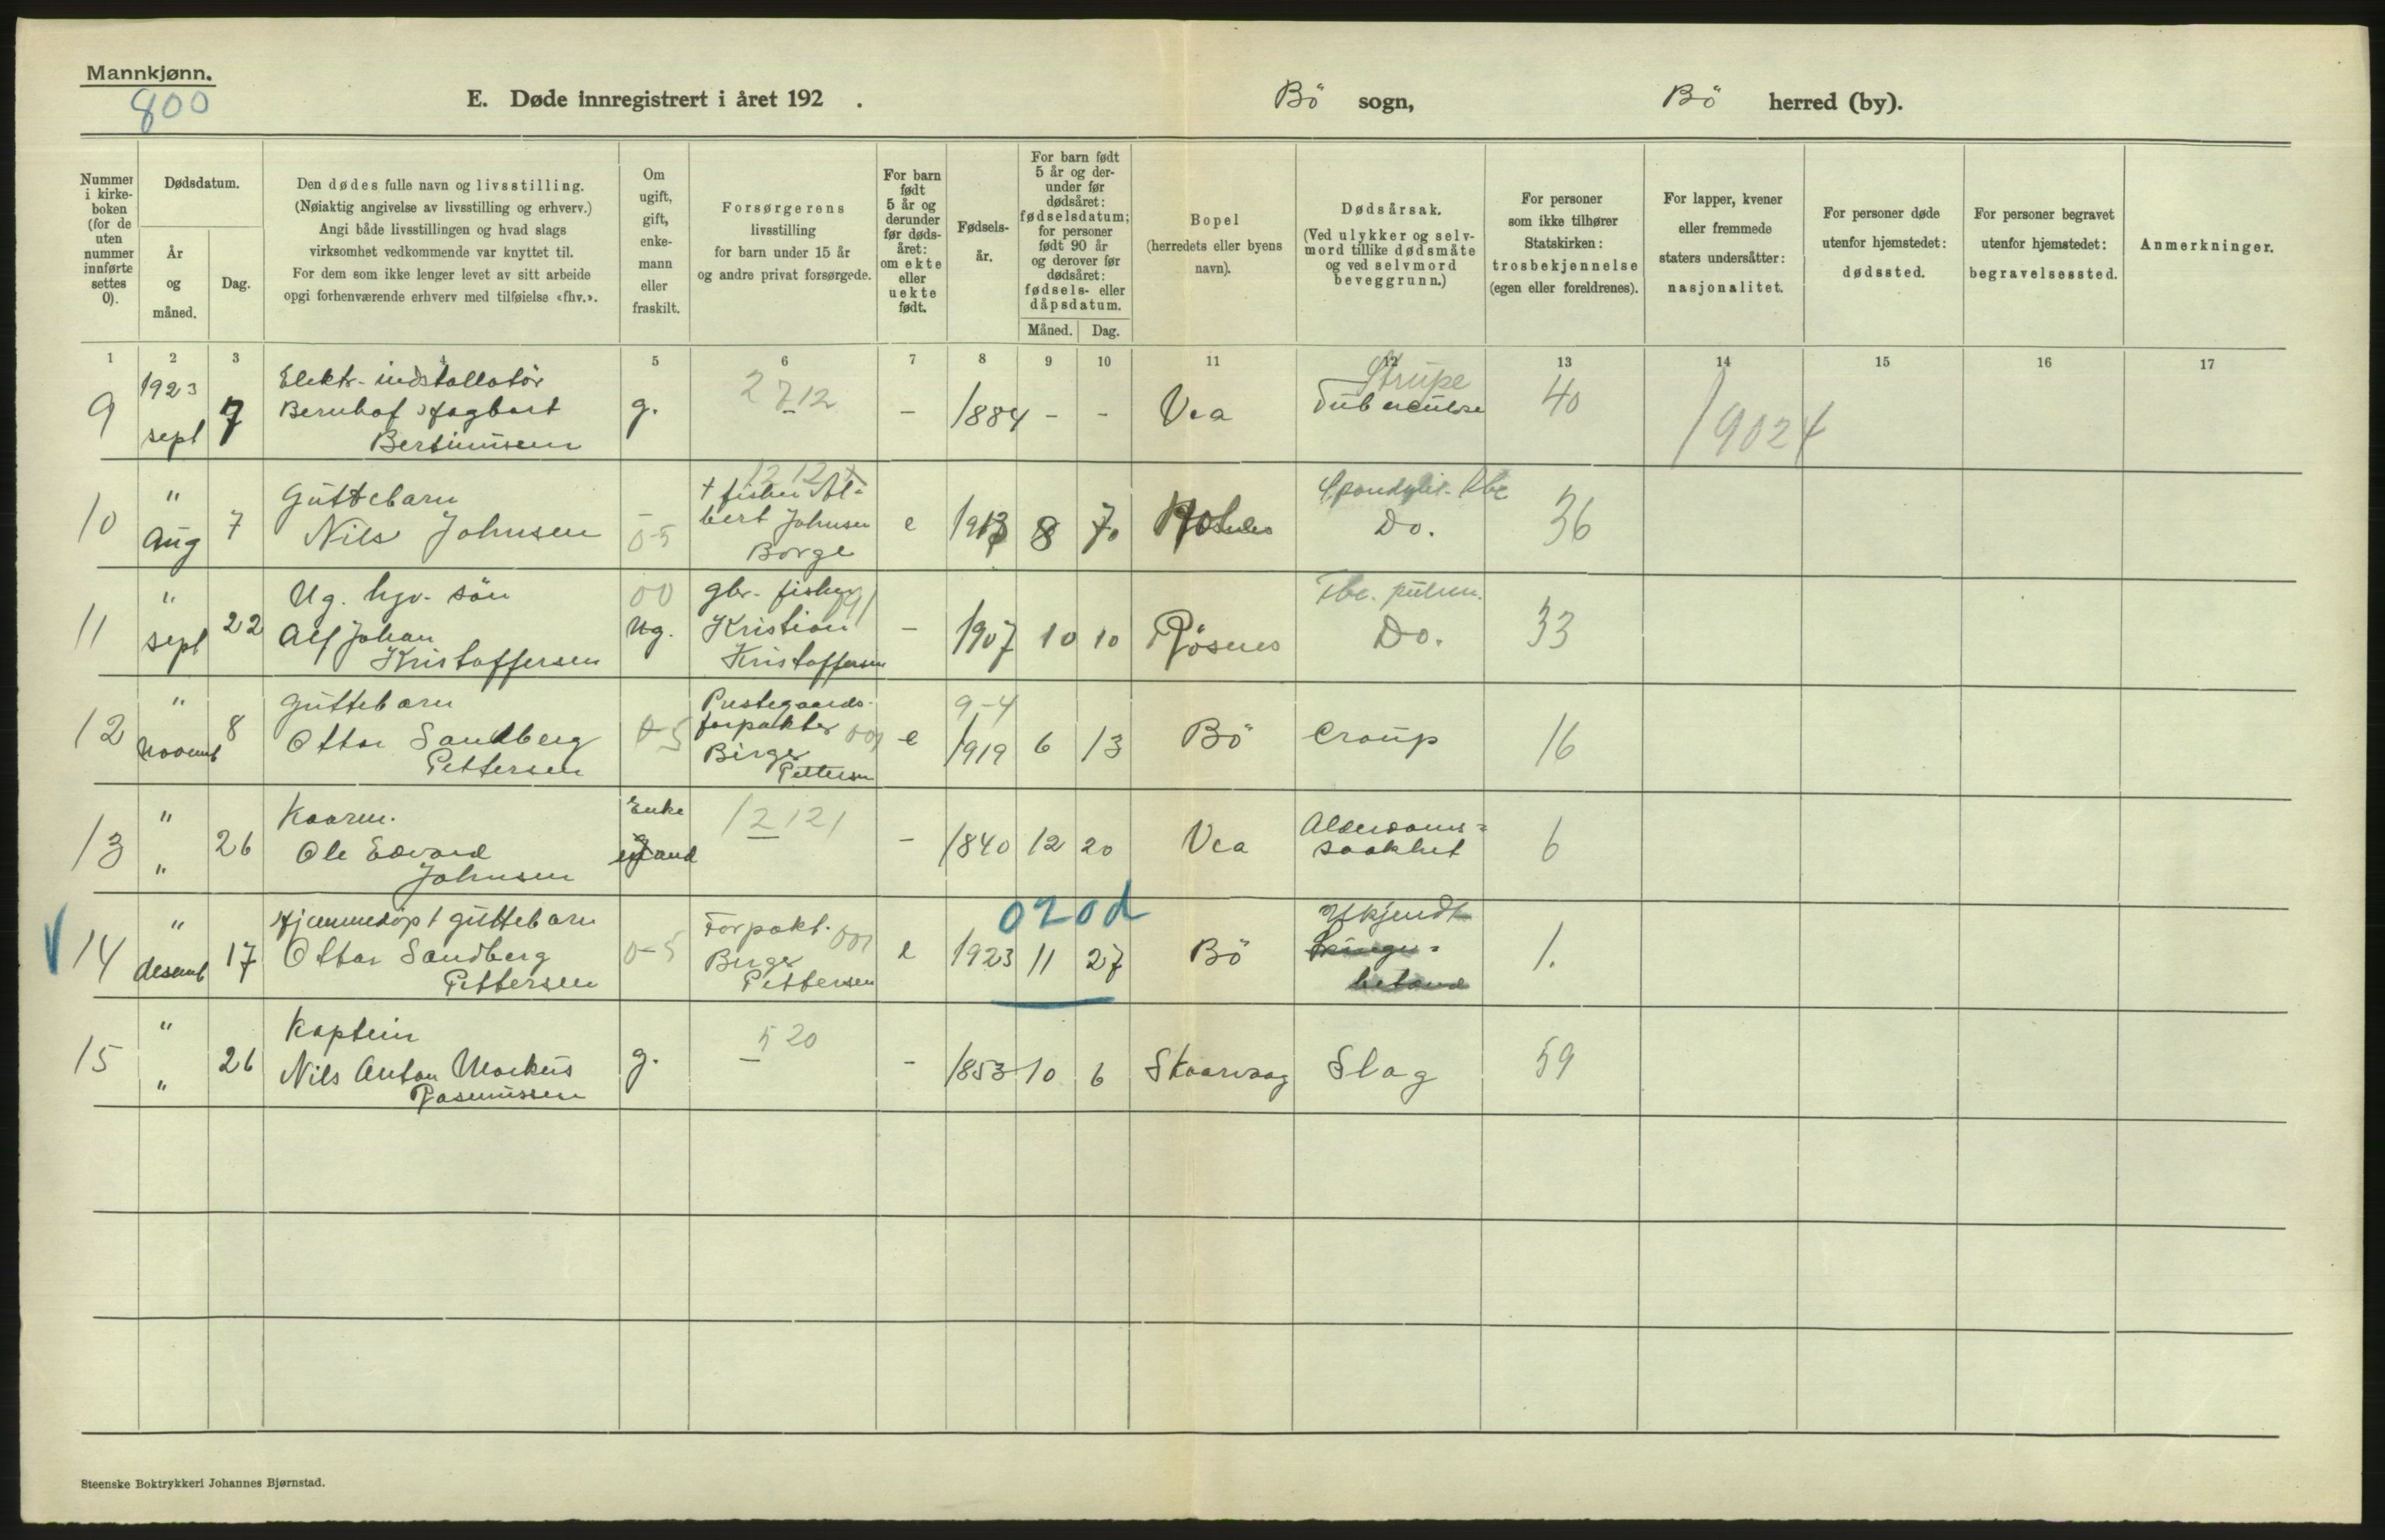 Mannkjønn.
800
E. Døde innregistrert i året 192 .
Bö sogn,
Bö herred (by).
Nummer i kirke-boken (for de uten nummer innførte settes 0).
Dødsdatum.
År og måned.
Dag.
Den dødes fulle navn og livsstilling.
(Nøiaktig angivelse av livsstilling og erhverv.)
Angi både livsstillingen og hvad slags
virksomhet vedkommende var knyttet til.
For dem som ikke lenger levet av sitt arbeide
opgi forhenværende erhverv med tilføielse «fhv.».
Om ugift, gift, enke-mann eller fraskilt.
Forsørgerens
livsstilling
for barn under 15 år
og andre privat forsørgede.
For barn født 5 år og derunder før døds-året: om ekte eller uekte født.
Fødsels-år.
For barn født 5 år og der-under før dødsåret: fødselsdatum; for personer født 90 år og derover før dødsåret: fødsels- eller dåpsdatum.
Måned. Dag.
Bopel
(herredets eller byens
navn).
Dødsårsak.
(Ved ulykker og selv-
mord tillike dødsmåte
og ved selvmord
beveggrunn.)
For personer
som ikke tilhører
Statskirken:
trosbekjennelse
(egen eller foreldrenes).
For lapper, kvener
eller fremmede
staters undersåtter:
nasjonalitet.
For personer døde
utenfor hjemstedet:
dødssted.
For personer begravet
utenfor hjemstedet:
begravelsessted.
Anmerkninger.
1 2 3 4 5 6 7 8 9 10 11 12 13 14 15 16 17
9 1923 sept 7
Elektr- indstallatör
Bernhof Hagbart
Bertinussen
g. 2 7 12 - 1884 - - Vea
Strupe
Tuberculose
40
19024
10 " Aug 7
Guttebarn
Nils Johnsen
- 0-5
12 12 +
+ fisker Al-
bert Johnsen
Borge
e 1913 8
Spondylit. tbc
Do.
36
11 " sept 22
Ug. hjv. sön
Alf Johan
Kristoffersen
00
Ug.
gbr- fisker
Kristian
Kristoffersen
- 1907 10 10 Røsnes
Tbc. pulm.
Do.
33
12 " Novemb 8
Guttebarn
Ottar Sandberg
Pettersen
0-5
Prestegaards-
forpakter 001
Birger
Pettersen
e 9-4
1919 6 13 Bö Croup 16
13 " " 26
Kaarm.
Ole Edvard
Johnsen
Enke
mand
12 121 - 1840 12 20 Vea
Alderdoms-
svakhet
6
14 " desemb 17
Hjemmedöpt guttebarn
Ottar Sandberg
Pettersen
0-5
Forpakt. 001
Birger
Pettersen
e 020d
1923 11 27 Bö
Ukjendt
1.
15 " " 26
Kaptein
Nils Anton Markus
Rasmussen
g. 520 - 1853 10 6 Skaarvaag Slag 59
Steenske Boktrykkeri Johannes Bjørnstad.